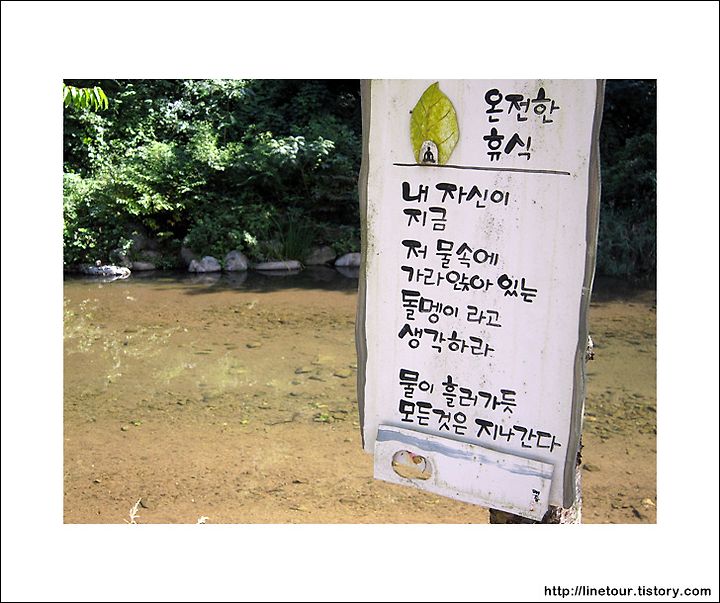 온전한
휴식
내 자신이
지금
저 물속에
가라앉아 있는
돌멩이 라고
생각하라
물이 흘러가듯
모든것은 지나간다
http://linetour.tistory.com